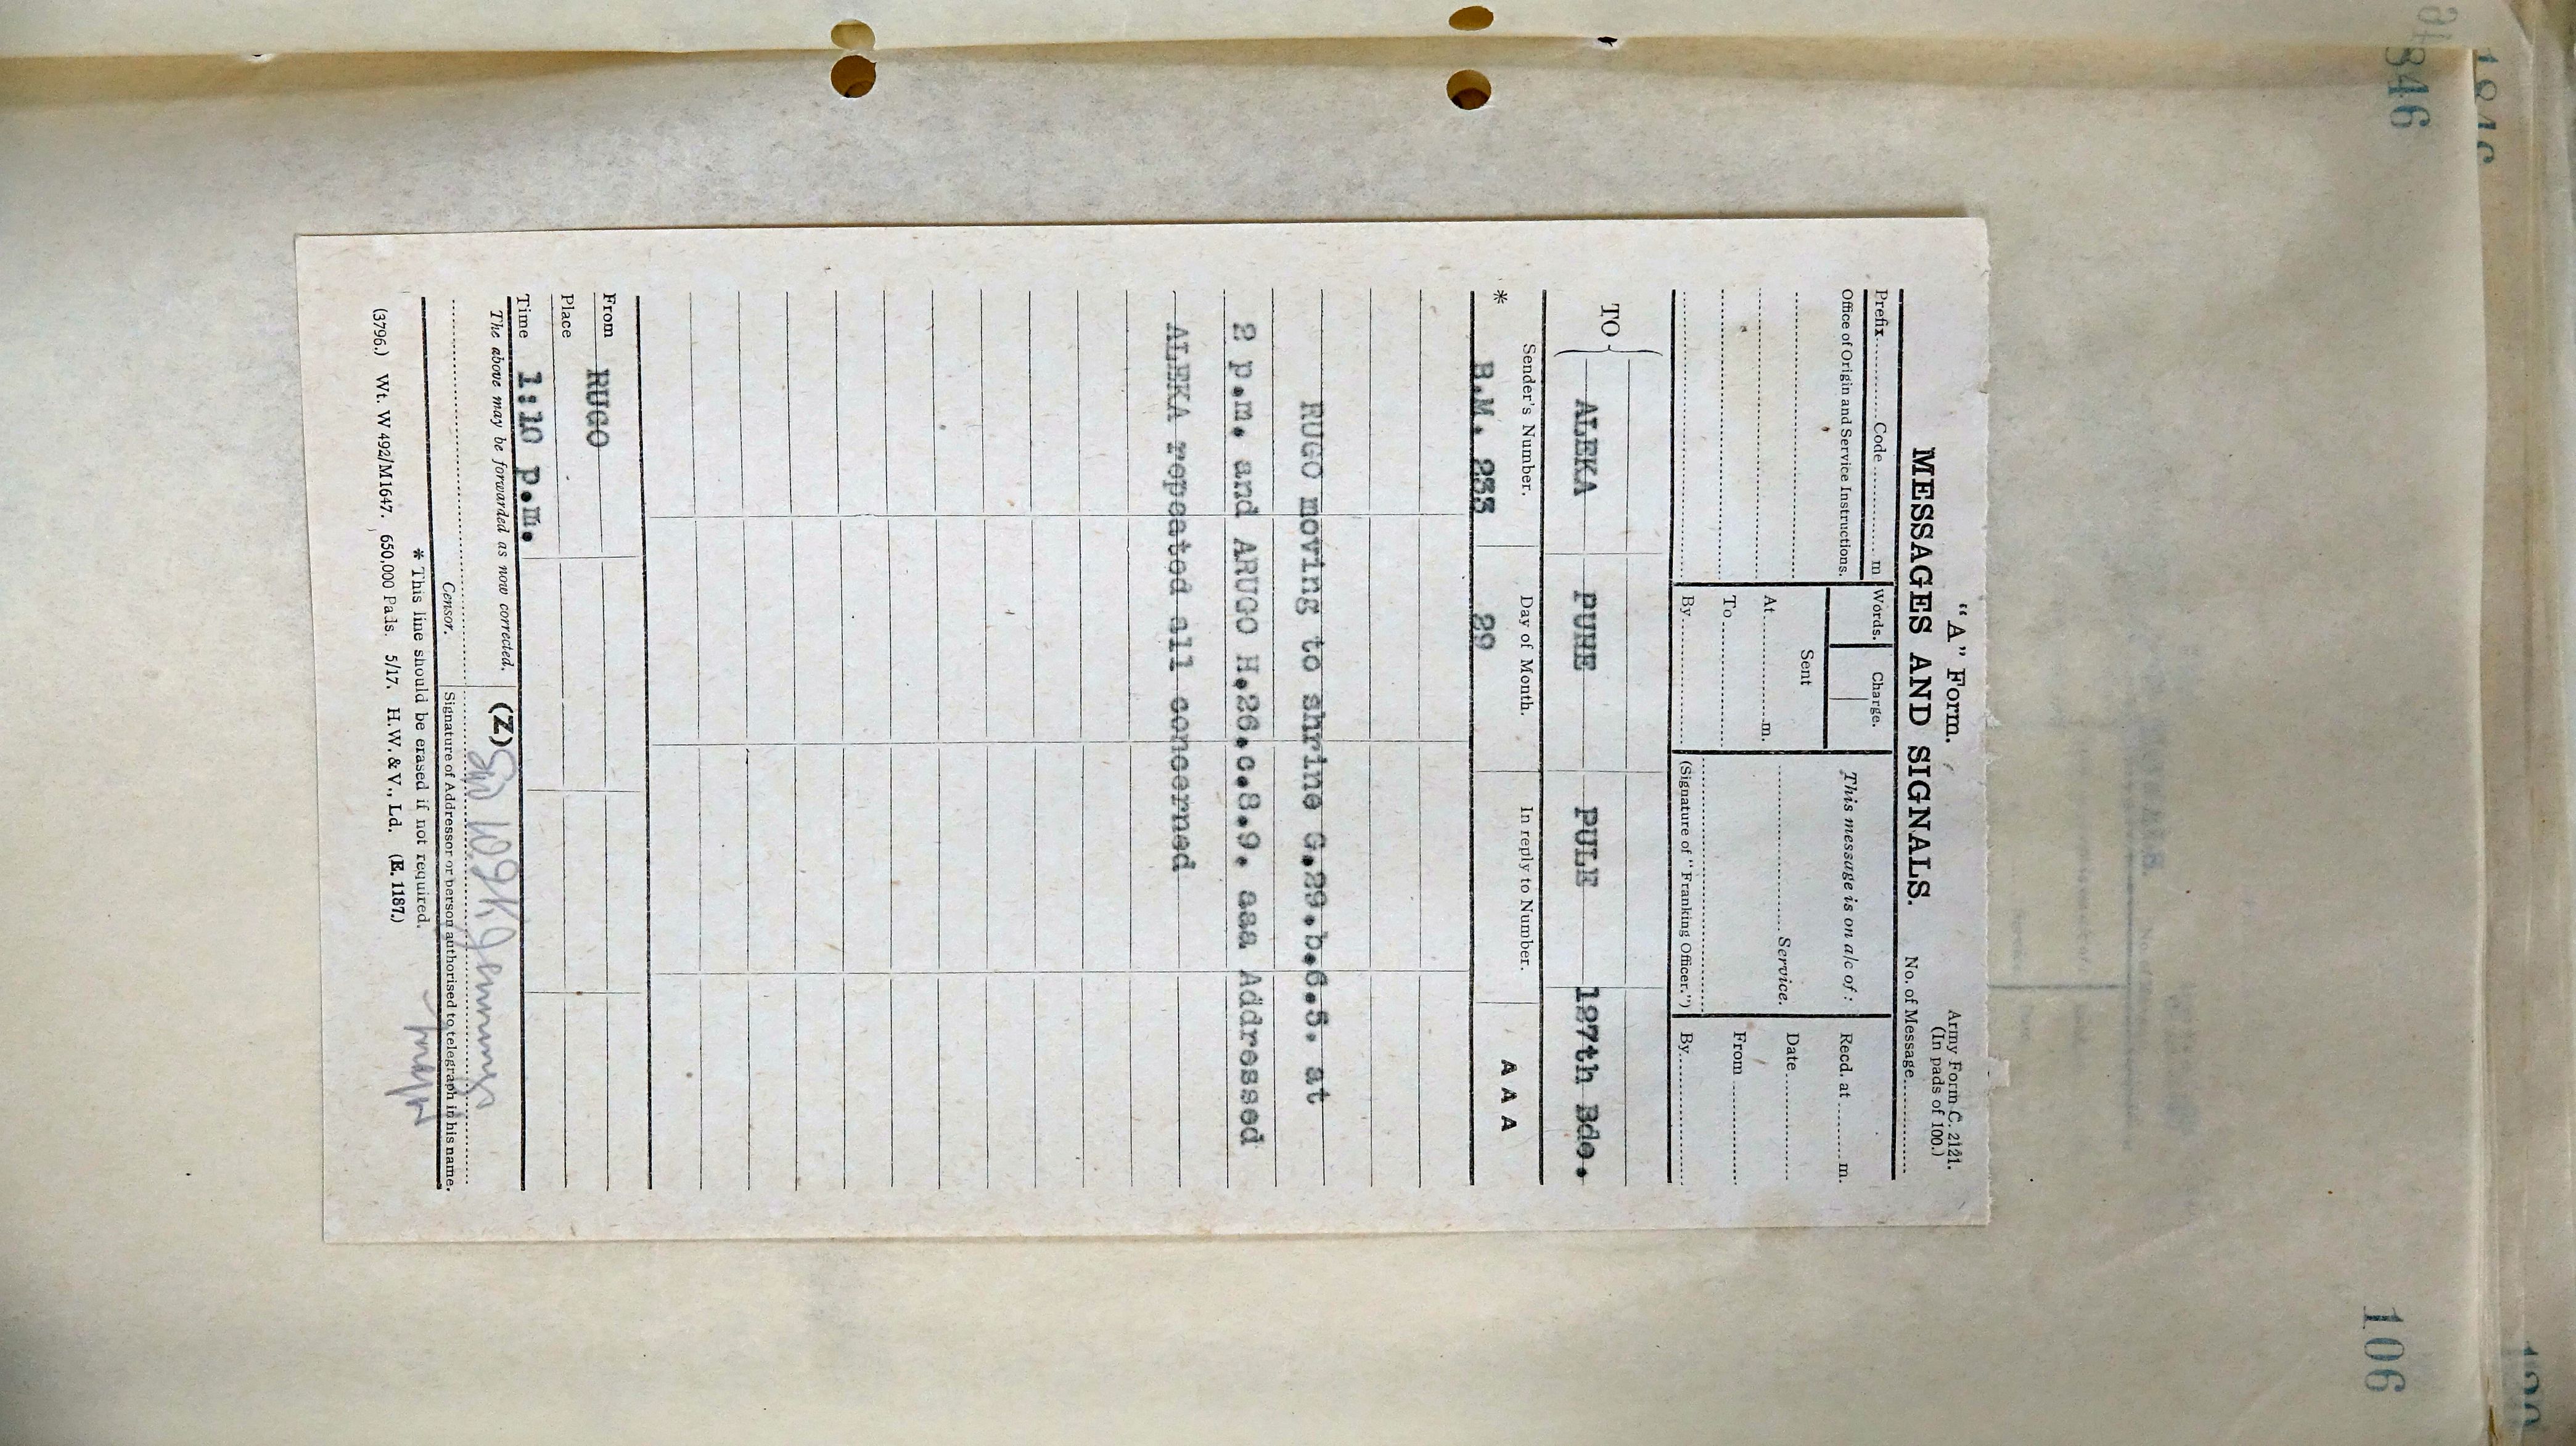 "A" Form.
Army Form C. 2121.
(In pads of 100.)
MESSAGES AND SIGNALS.
No. of Message
Prefix Code m
Words. Charge.
This message is on a/c of :
Recd. at m.
Office of Origin and Service Instructions.
Sent
At m.
Service.
Date
To
From
By
(Signature of "Franking Officer.")
By
TO
ALEKA PUHE PULE 197th Bde.
Sender's Number. Day of Month. In reply to Number. AAA
* B.M. 233 29
RUGO moving to shrine G.29.b.6.5. at
2 p.m. and ARUGO H.26.c.8.9. aaa Addressed
ALEKA repeated all concerned
From RUGO
Place
Time 1:10 p.m.
The above may be forwarded as now corrected. (Z)
Censor. Signature of Addressor or person authorised to telegraph in his name.
* This line should be erased if not required.
(3796.) Wt. W 492/M1647. 650,000 Pads. 5/17. H.W. & V., Ld. (E. 1187.)
346
106